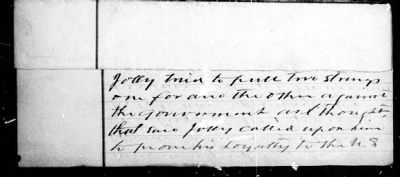 Jolly tried to pull two strings
one for and the other against
the government as I thought,
that said Jolly called upon him
to prove his Loyalty to the U.S